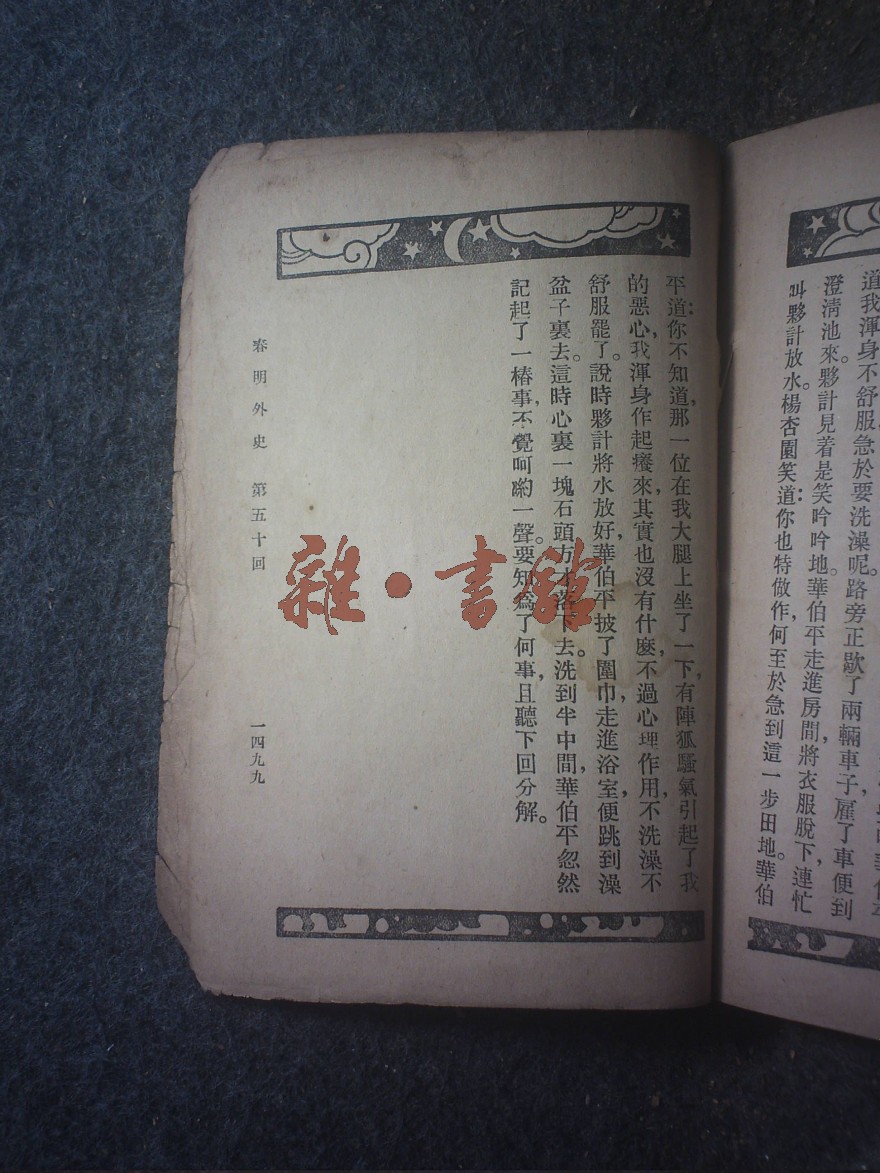 道我渾身不舒服急於要洗澡呢。路旁正歇了兩輛車子，雇了車便到
澄清池來。夥計見着是笑吟吟地。華伯平走進房間，將衣服脫下，連忙
叫夥計放水。楊杏園笑道：你也特做作，何至於急到這一步田地。華伯
平道：你不知道，那一位在我大腿上坐了一下，有陣狐騷氣，引起了我
的惡心，我渾身作起癢來，其實也沒有什麽，不過心理作用，不洗澡不
舒服罷了。說時夥計將水放好，華伯平披了圍巾，走進浴室，便跳到澡
盆子裏去。這時心裏一塊石頭方才落下去。洗到半中間，華伯平忽然
記起了一樁事，不覺呵喲一聲。要知爲了何事，且聽下回分解。
春明外史 第五十回
一四九九
雜·書館